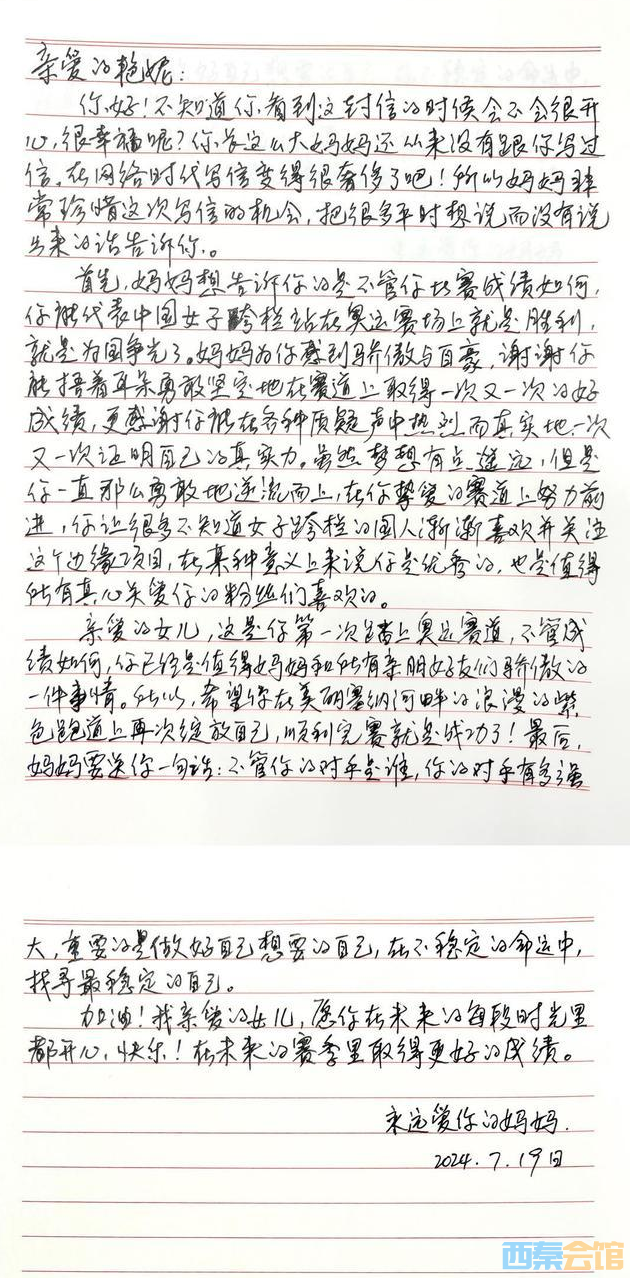 亲爱的艳妮：
你好！不知道你看到这封信的时候会不会很开
心，很幸福呢？你长这么大妈妈还从来没有跟你写过
信。在网络时代写信变得很奢侈了吧！所以妈妈非
常珍惜这次写信的机会，把很多平时想说而没有说
出来的话告诉你。
首先，妈妈想告诉你的是不管你比赛成绩如何，
你能代表中国女子跨栏站在奥运赛场上就是胜利，
就是为国争光了。妈妈为你感到骄傲与自豪，谢谢你
能捂着耳朵勇敢坚定地在赛道上取得一次又一次的好
成绩，更感谢你能在各种质疑声中热烈而真实地一次
又一次证明自己的真实力。虽然梦想有点遥远，但是
你一直那么勇敢地逆流而上，在你挚爱的赛道上努力前
进，你让很多不知道女子跨栏的国人渐渐喜欢并关注
这个边缘项目，在某种意义上来说你是优秀的，也是值得
所有真心关爱你的粉丝们喜欢的。
亲爱的女儿，这是你第一次踏上奥运赛道，不管成
绩如何，你已经是值得妈妈和所有亲朋好友们骄傲的
一件事情。所以，希望你在美丽塞纳河畔的浪漫的紫
色跑道上再次绽放自己，顺利完赛就是成功了！最后，
妈妈要送你一句话：不管你的对手是谁，你的对手有多强
大，重要的是做好自己想要的自己，在不稳定的命运中，
找寻最稳定的自己。
加油！我亲爱的女儿，愿你在未来的每段时光里
都开心，快乐！在未来的赛季里取得更好的成绩。
永远爱你的妈妈.
2024.7.19日
西秦会馆